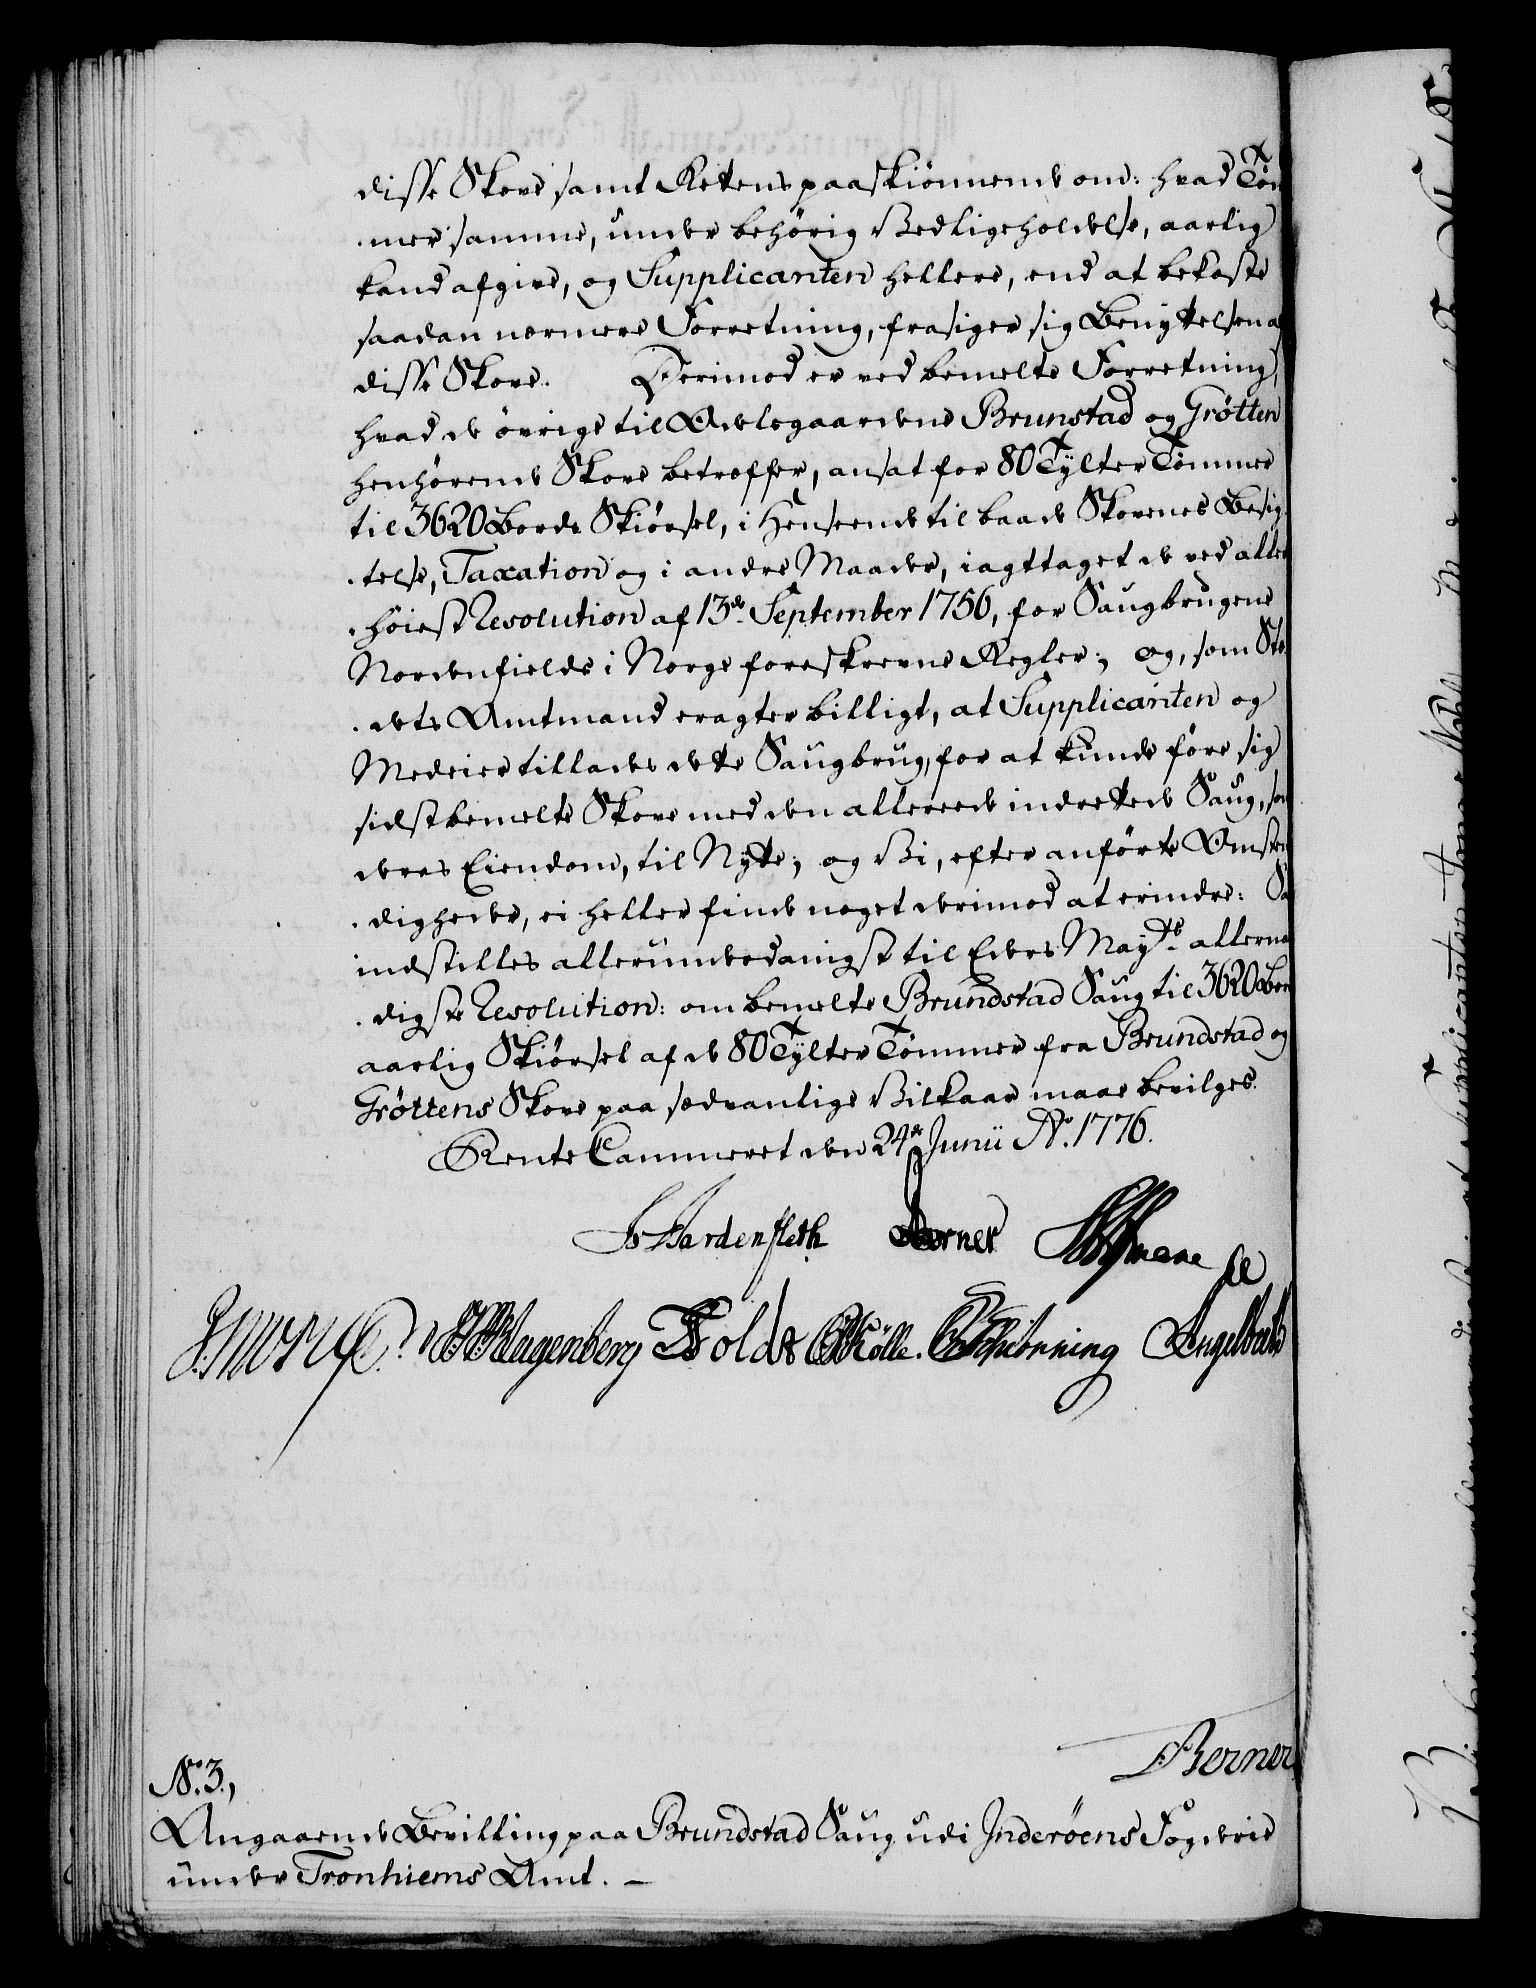 disse Skove samt Rettens paaskiønnende om: hvad Tøm
mer samme, under behörig Vedligeholdelse, aarlig
kand afgive, og Supplicanten hellere, end at bekoste
saadan nærmere Forretning, frasiger sig Benyttelsen af
disse Skove. Derimod er ved bemelte Forretning,
hvad de övrige til Avlsgaardene Brunstad og Gröttem
henhörende Skove betreffer, ansat for 80 Tylter Tømmer
til 3620 Bords Skiørsel, i Henseende til baade Skovenes Besig
telse, Taxation og i andre Maader, iagttaget de ved aller
höiest Resolution af 13de September 1756, for Saugbrugene
Nordenfields i Norge foreskrevne Regler; og, som Stæ
dets Amtmand eragter billigt, at Supplicanten og
Medeiere tillades dette Saugbrug, for at kunde före sig
sidstbemelte Skove med den allerede indrettede Saug, som
deres Eiendom, til Nytte; og Vi, efter anförte Omsten
digheder, ei heller finde noget derimod at erindre: Saa
indstilles allerunderdanigst til Eders Maytts allernaa
digste Resolution: om bemelte Brundstad Saug til 3620 Bord
aarlig Skiørsel af de 80 Tylter Tømmer fra Brundstad og
Gröttens Skove paa sædvanlige Vilkaar maae bevilges.
RenteCammeret den 24de Junii Ao. 1776.
JsHardenfleth Berner
Klagenberg Holdt Kölle. Schiönning Engelbreth
Berner
No. 3.,
Angaaende Bevilling paa Brundstad Saug udi Inderöens Fogderie
under Tronhiems Amt. —